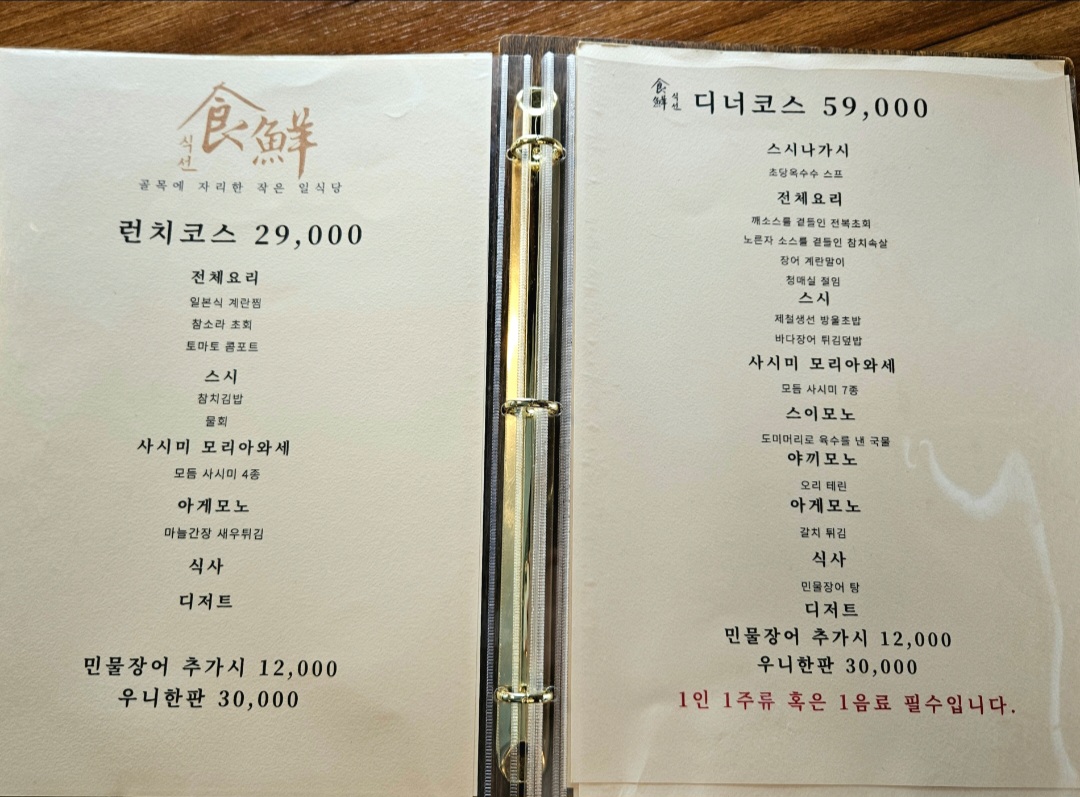 食鮮
식선
골목에 자리한 작은 일식당
런치코스 29,000
전체요리
일본식 계란찜
참소라 초회
토마토 콤포트
스시
참치김밥
물회
사시미 모리아와세
모듬 사시미 4종
아게모노
마늘간장 새우튀김
식사
디저트
민물장어 추가시 12,000
우니한판 30,000
食鮮 식선 디너코스 59,000
스시나가시
초당옥수수 스프
전체요리
깨소스를 곁들인 전복초회
노른자 소스를 곁들인 참치속살
장어 계란말이
청매실 절임
스시
제철생선 방울초밥
바다장어 튀김덮밥
사시미 모리아와세
모듬 사시미 7종
스이모노
도미머리로 육수를 낸 국물
야끼모노
오리 테린
아게모노
갈치 튀김
식사
민물장어 탕
디저트
민물장어 추가시 12,000
우니한판 30,000
1인 1주류 혹은 1음료 필수입니다.